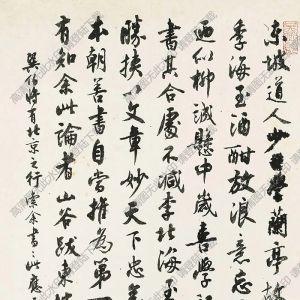 东坡道人少學蘭亭故
季海至酒酣放浪意忘
逈似柳誠懸中歲喜學
書其合處不減李北海至
勝挾以文章妙天下忠義
本朝善書自當推為第一
有知余此論者山谷跋東坡
巽伯將有北京之行索余書此應